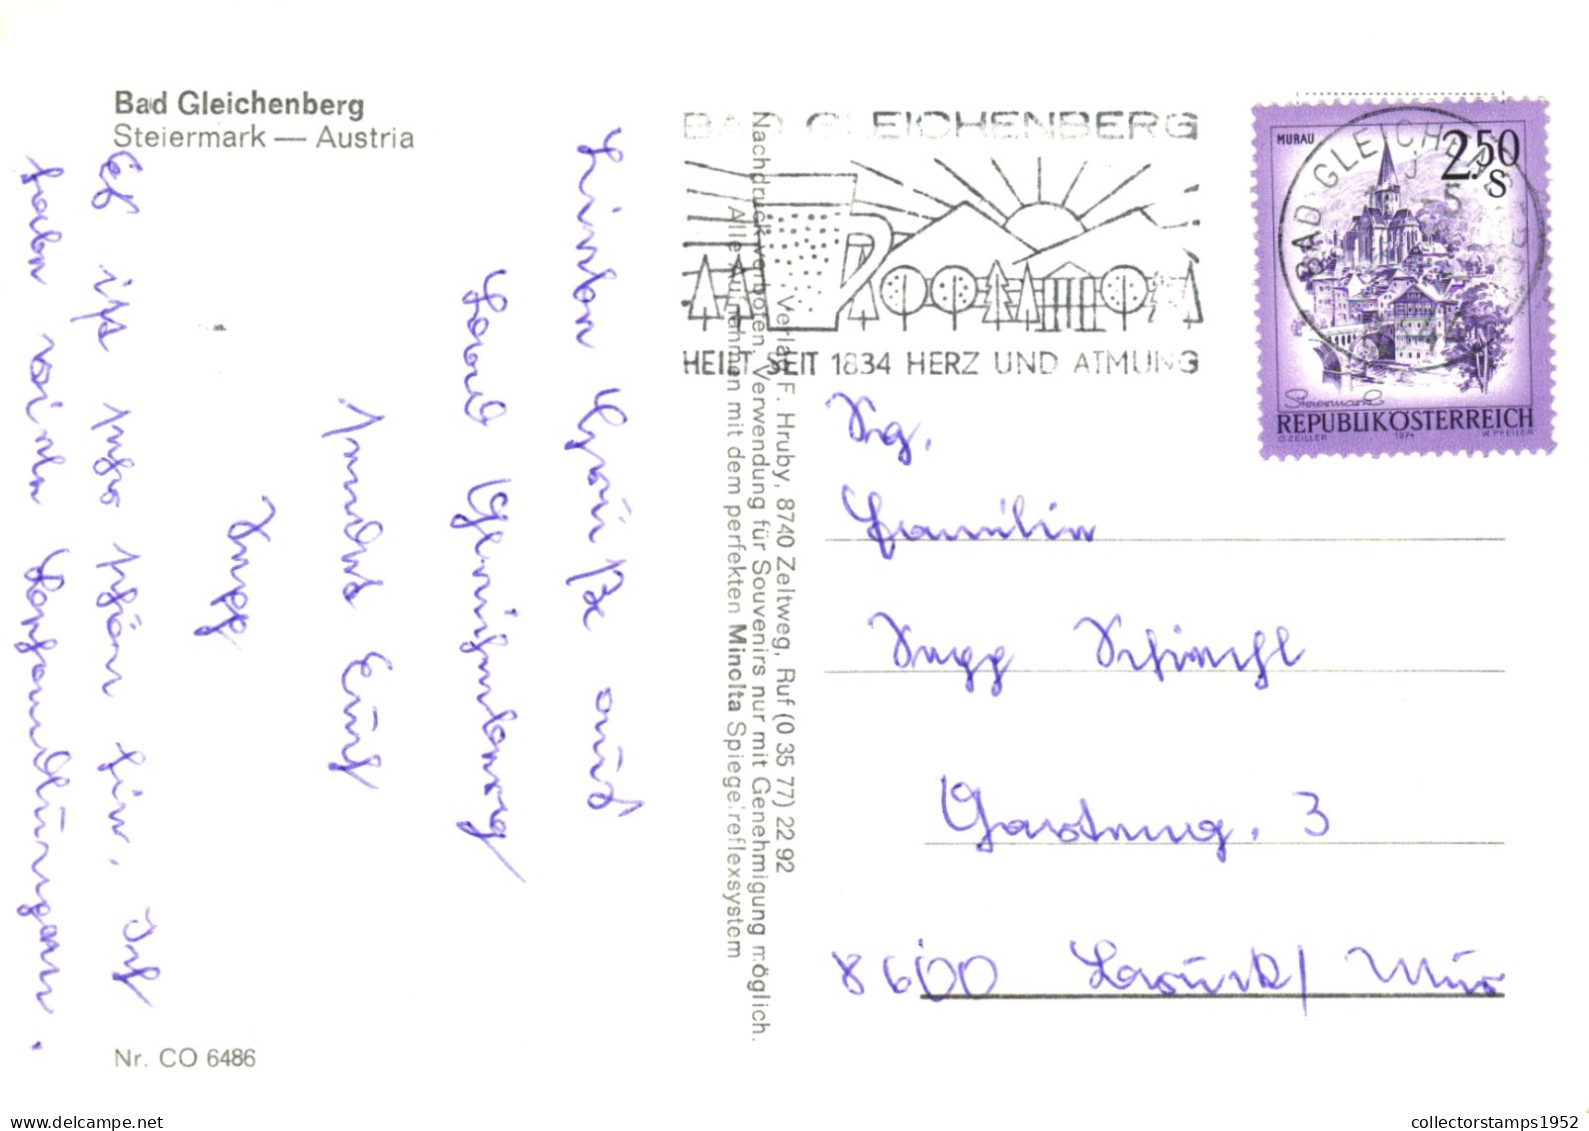 Bad Gleichenberg
Steiermark — Austria
Liebe Grüße aus
Bad Gleichenberg
sendet Euch
Sepp
Es ist sehr schön hier. Ich
habe viele Behandlungen.
Nr. CO 6486
Verlag F. Hruby, 8740 Zeltweg, Ruf (0 35 77) 22 92
Nachdruck verboten, Verwendung für Souvenirs nur mit Genehmigung möglich.
Alle Aufnahmen mit dem perfekten Minolta Spiegelreflexsystem
BAD GLEICHENBERG
HEILT SEIT 1834 HERZ UND ATMUNG
BAD GLEICHENBERG
MURAU
2.50
S
Steiermark
REPUBLIK ÖSTERREICH
O. ZEILLER 1974 W. PFEILER
Familie
Sepp
3
8600 Bruck / Mur
collectorstamps1952